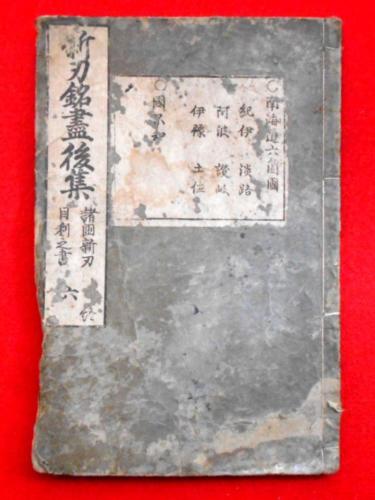 〇南海道六箇國
紀伊 淡路
阿波 讃岐
伊豫 土佐
〇國不知
新刃銘盡後集
諸國新刃
目利之書
六